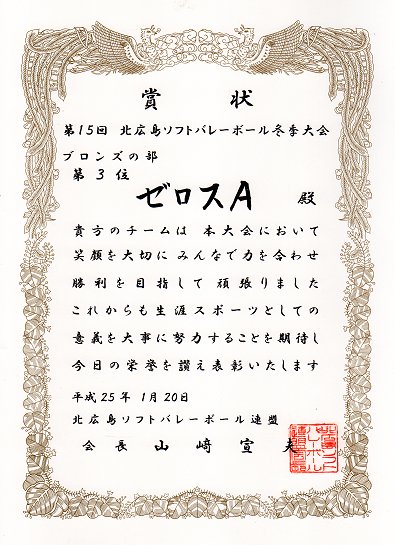 賞状
第15回 北広島ソフトバレーボール冬季大会
ブロンズの部
第3位
ゼロスA 殿
貴方のチームは 本大会において
笑顔を大切に みんなで力を合わせ
勝利を目指して 頑張りました
これからも生涯スポーツとしての
意義を大事に努力することを期待し
今日の栄誉を讃え表彰いたします
平成25年 1月20日
北広島ソフトバレーボール連盟
会長 山﨑宣夫